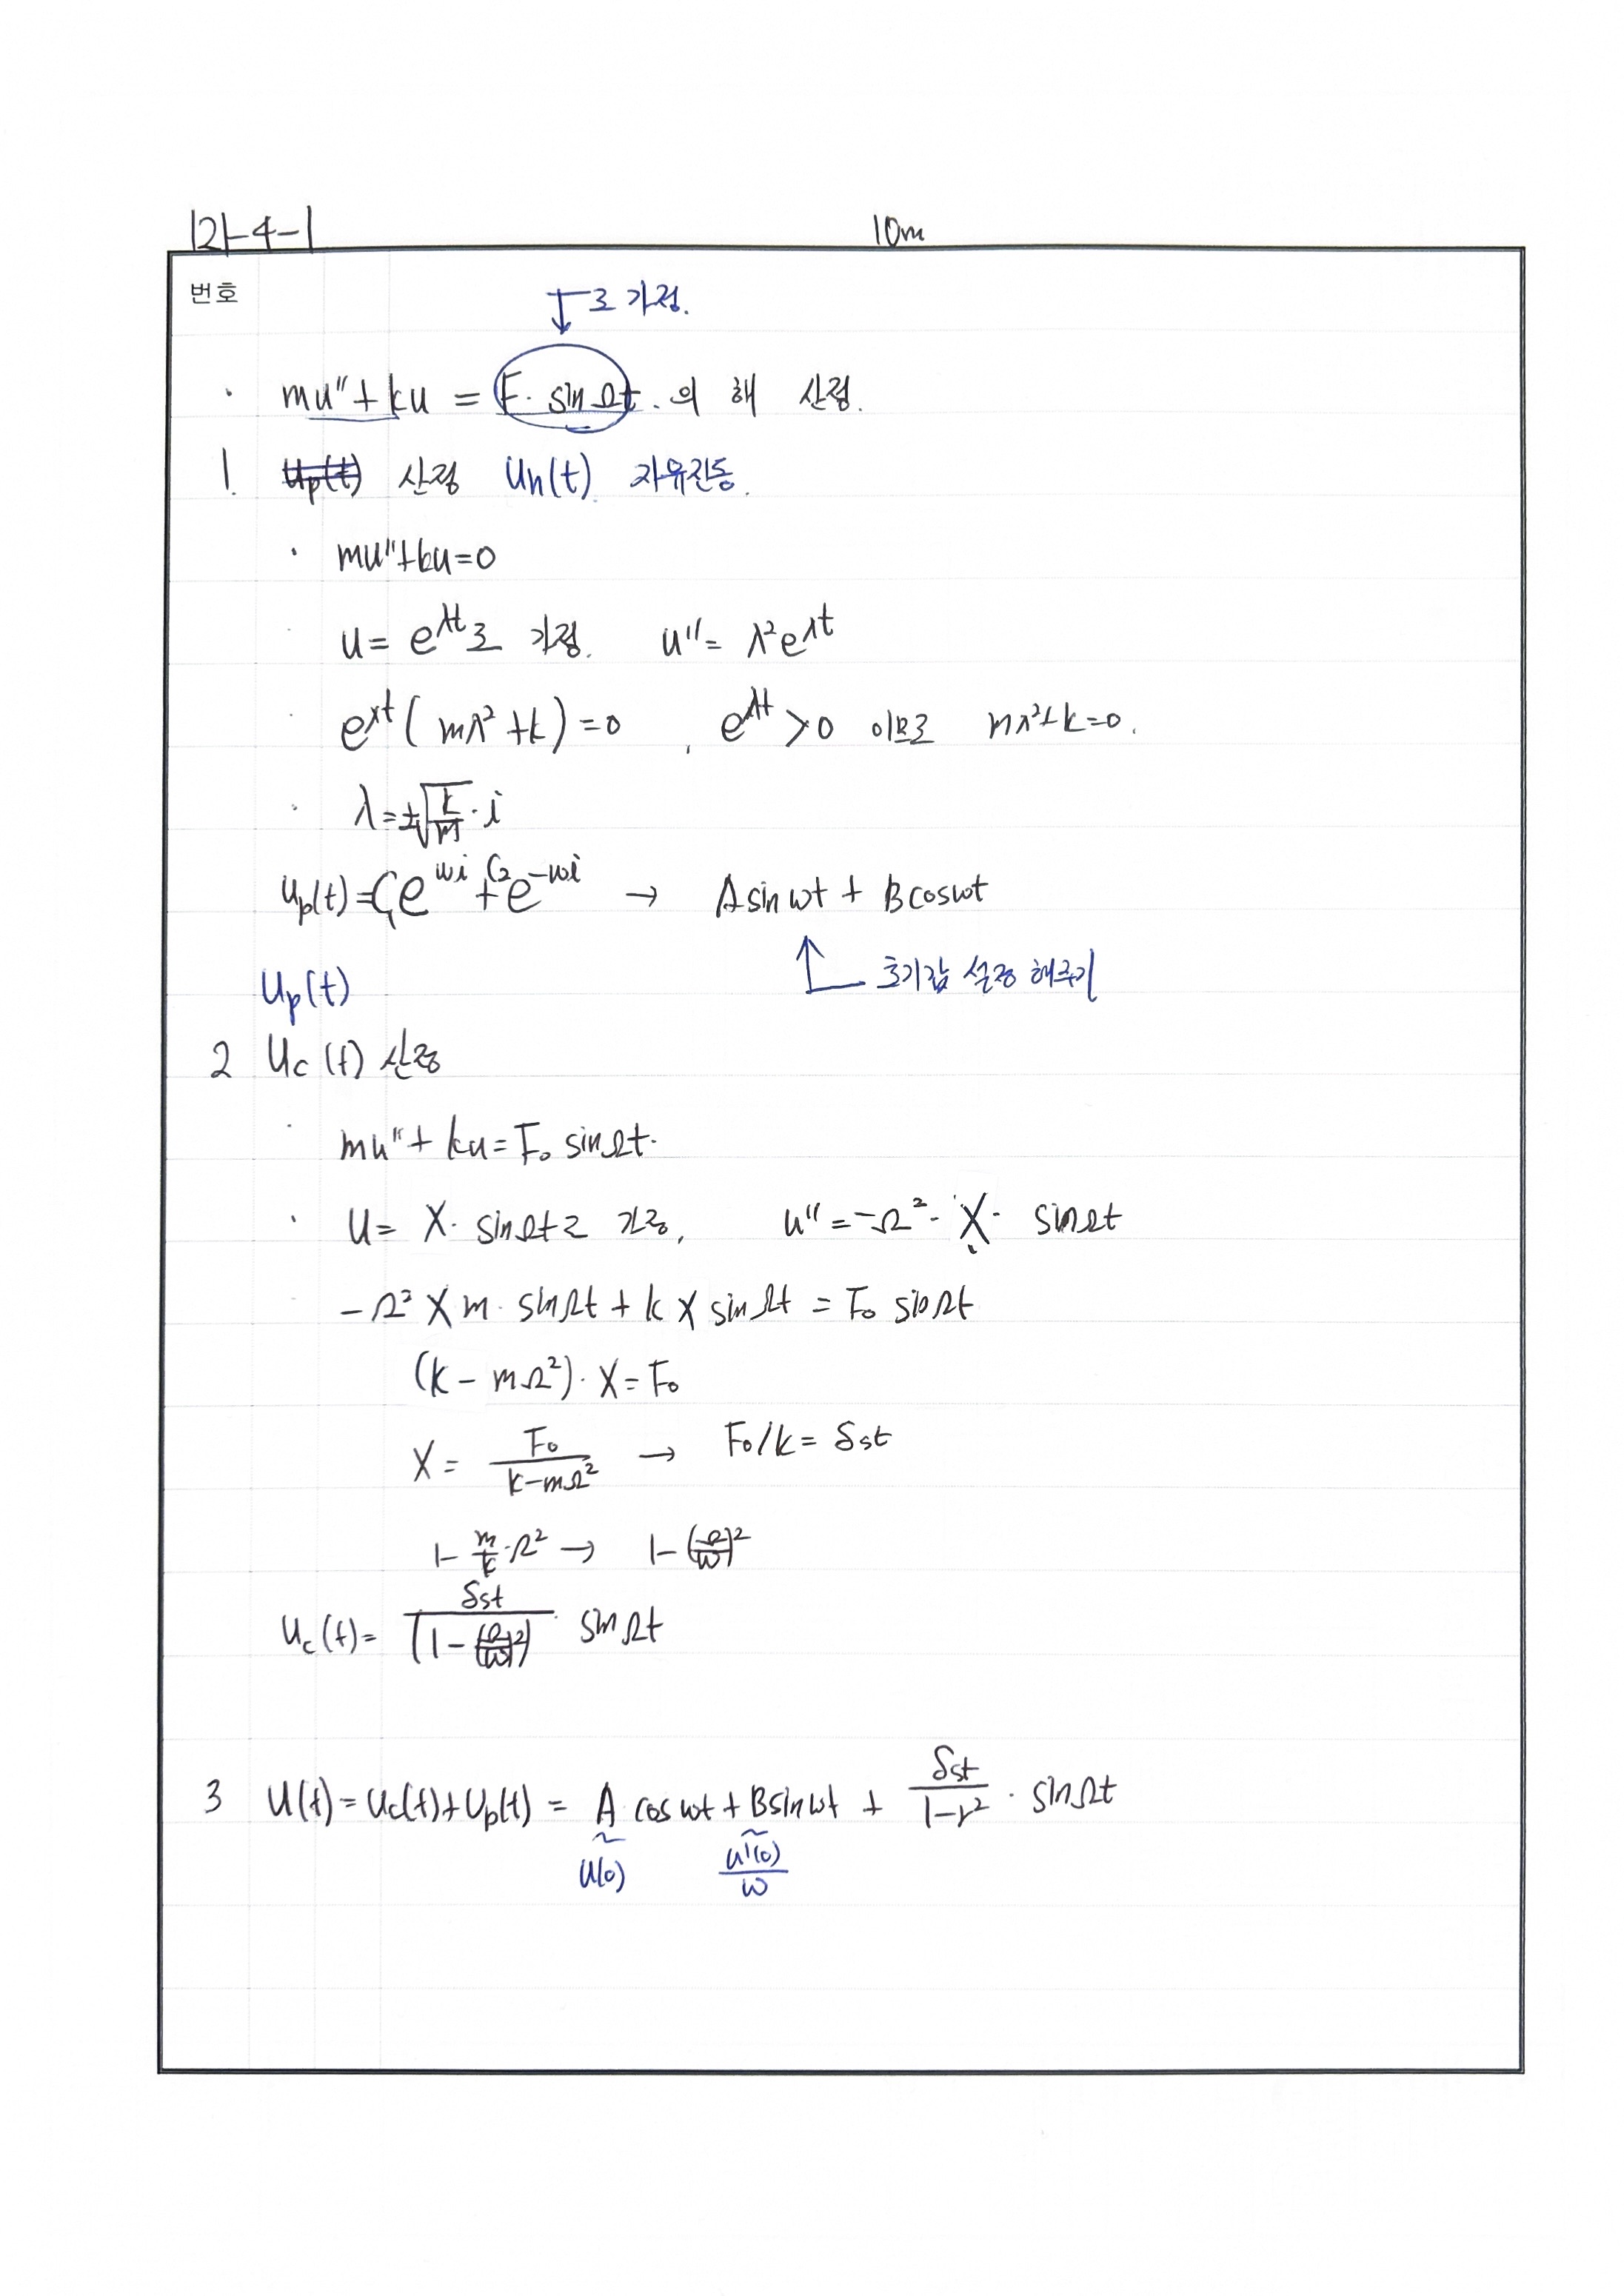 121-4-1 10m
번호
로 가정.
· mu″+ku = F· sinΩt 의 해 산정.
1. Up(t) 산정 Un(t) 자유진동.
· mu″+ku=0
· u= e^λt로 가정. u″= λ²e^λt
· e^λt(mλ²+k)=0 , e^λt>0 이므로 mλ²+k=0.
· λ=±√(k/m)·i
Up(t)=C₁e^ωi+C₂e^-ωi → A sinωt + B cosωt
초기값 설정 해주기
Up(t)
2 Uc(t) 산정
· mu″+ku=F₀ sinΩt.
· u= X· sinΩt로 가정, u″=-Ω²·X· sinΩt
-Ω²Xm· sinΩt + kX sinΩt = F₀ sinΩt
(k-mΩ²)·X=F₀
X= F₀/(k-mΩ²) → F₀/k= δst
1- m/k·Ω² → 1-(Ω/ω)²
Uc(t)= δst/(1-(Ω/ω)²) · sinΩt
3 U(t)=Uc(t)+Up(t) = A cosωt + B sinωt + δst/(1-r²) · sinΩt
U(0) u′(0)/ω